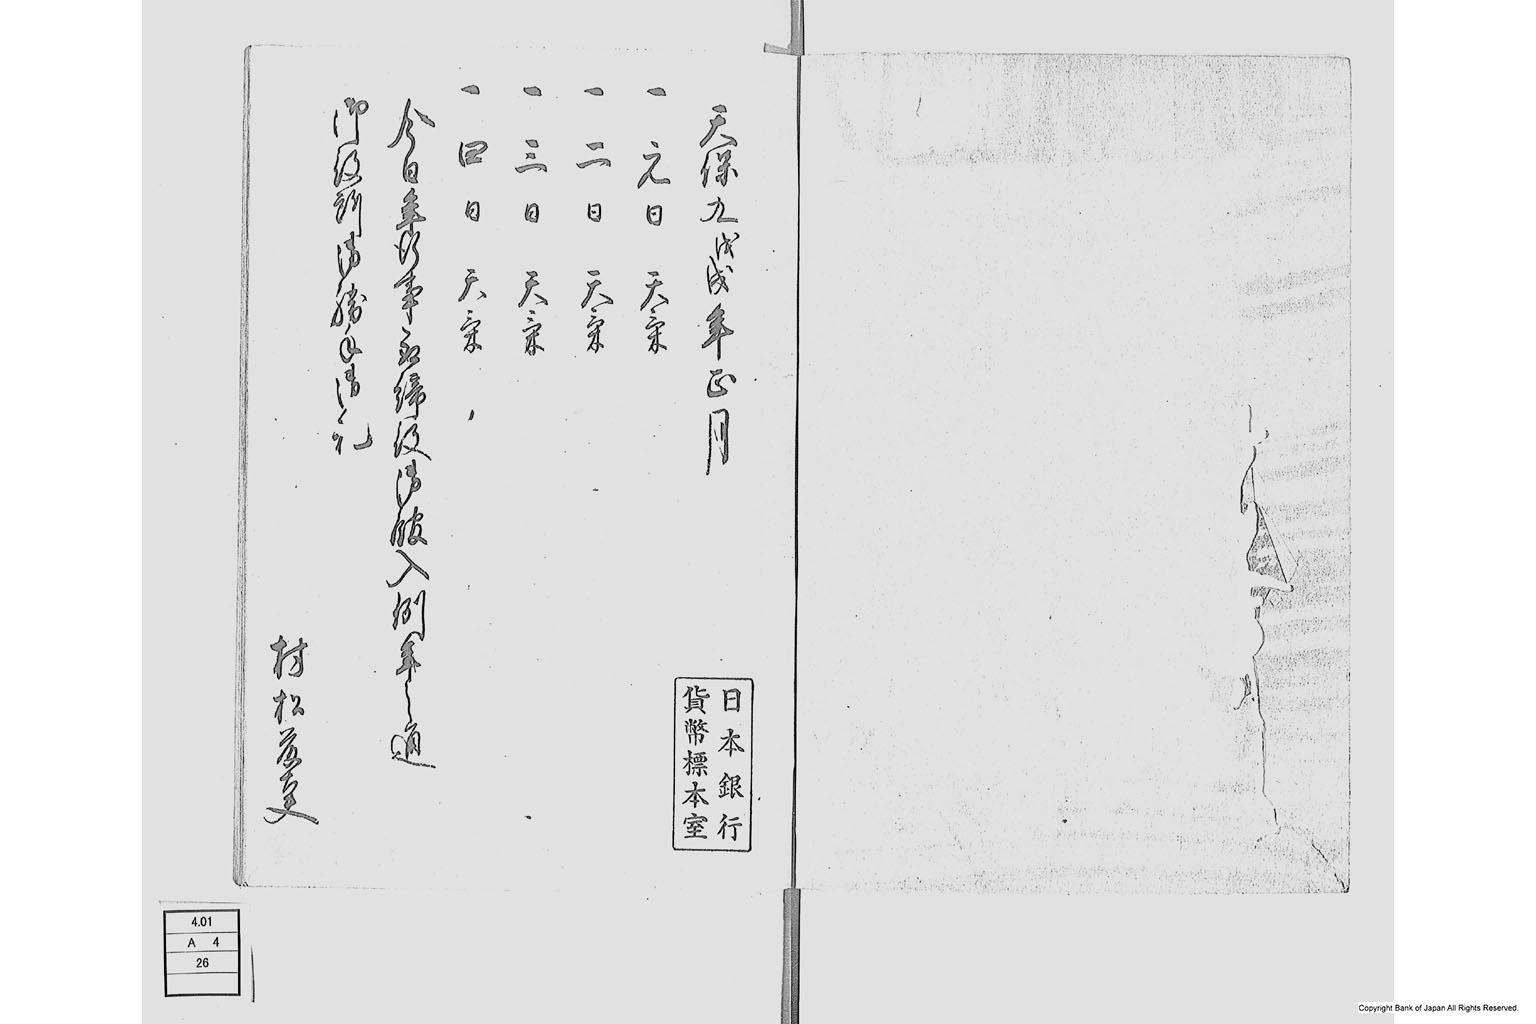 天保九戊戌年正月
一 元日 天氣
一 二日 天氣
一 三日 天氣
一 四日 天氣
今日年行事取締役御肢入例年之通
御役所御勝手御礼
村松
日本銀行
貨幣標本室
4.01
A 4
26
Copyright Bank of Japan All Rights Reserved.